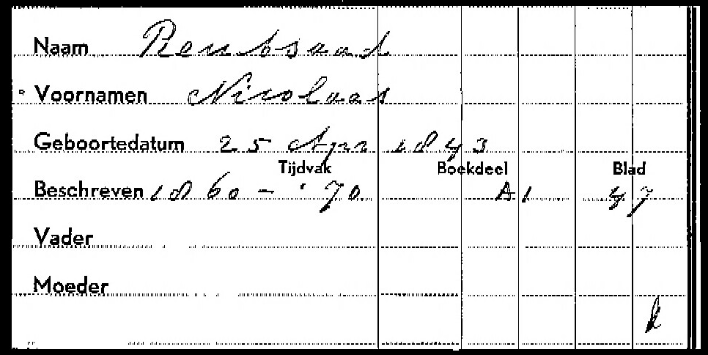 Naam Reubsaad
Voornamen Nicolaas
Geboortedatum 25 Apr 1843
Tijdvak Boekdeel Blad
Beschreven 1860-'70 A1 47
Vader
Moeder
k